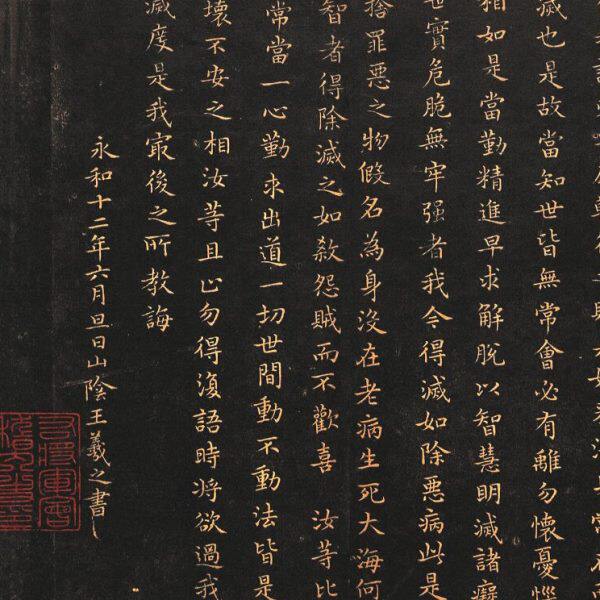 滅也是故當知世皆無常會必有離勿懷憂惱
相如是當勤精進早求解脫以智慧明滅諸癡
世實危脆無牢强者我今得滅如除惡病此是
捨罪惡之物假名為身没在老病生死大海何
智者得除滅之如殺怨賊而不歡喜 汝等比
常當一心勤求出道一切世間動不動法皆是
壞不安之相汝等且止勿得復語時將欲過我
滅度是我冣後之所教誨
永和十二年六月旦日山陰王羲之書
右將軍會